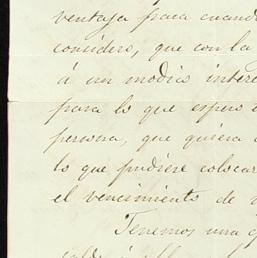 ventaja para cuando
considero, que con la
á un modico intere
para lo que espero
persona, que quiera
lo que pudiere colocar
el vencimiento de
Tenemos una